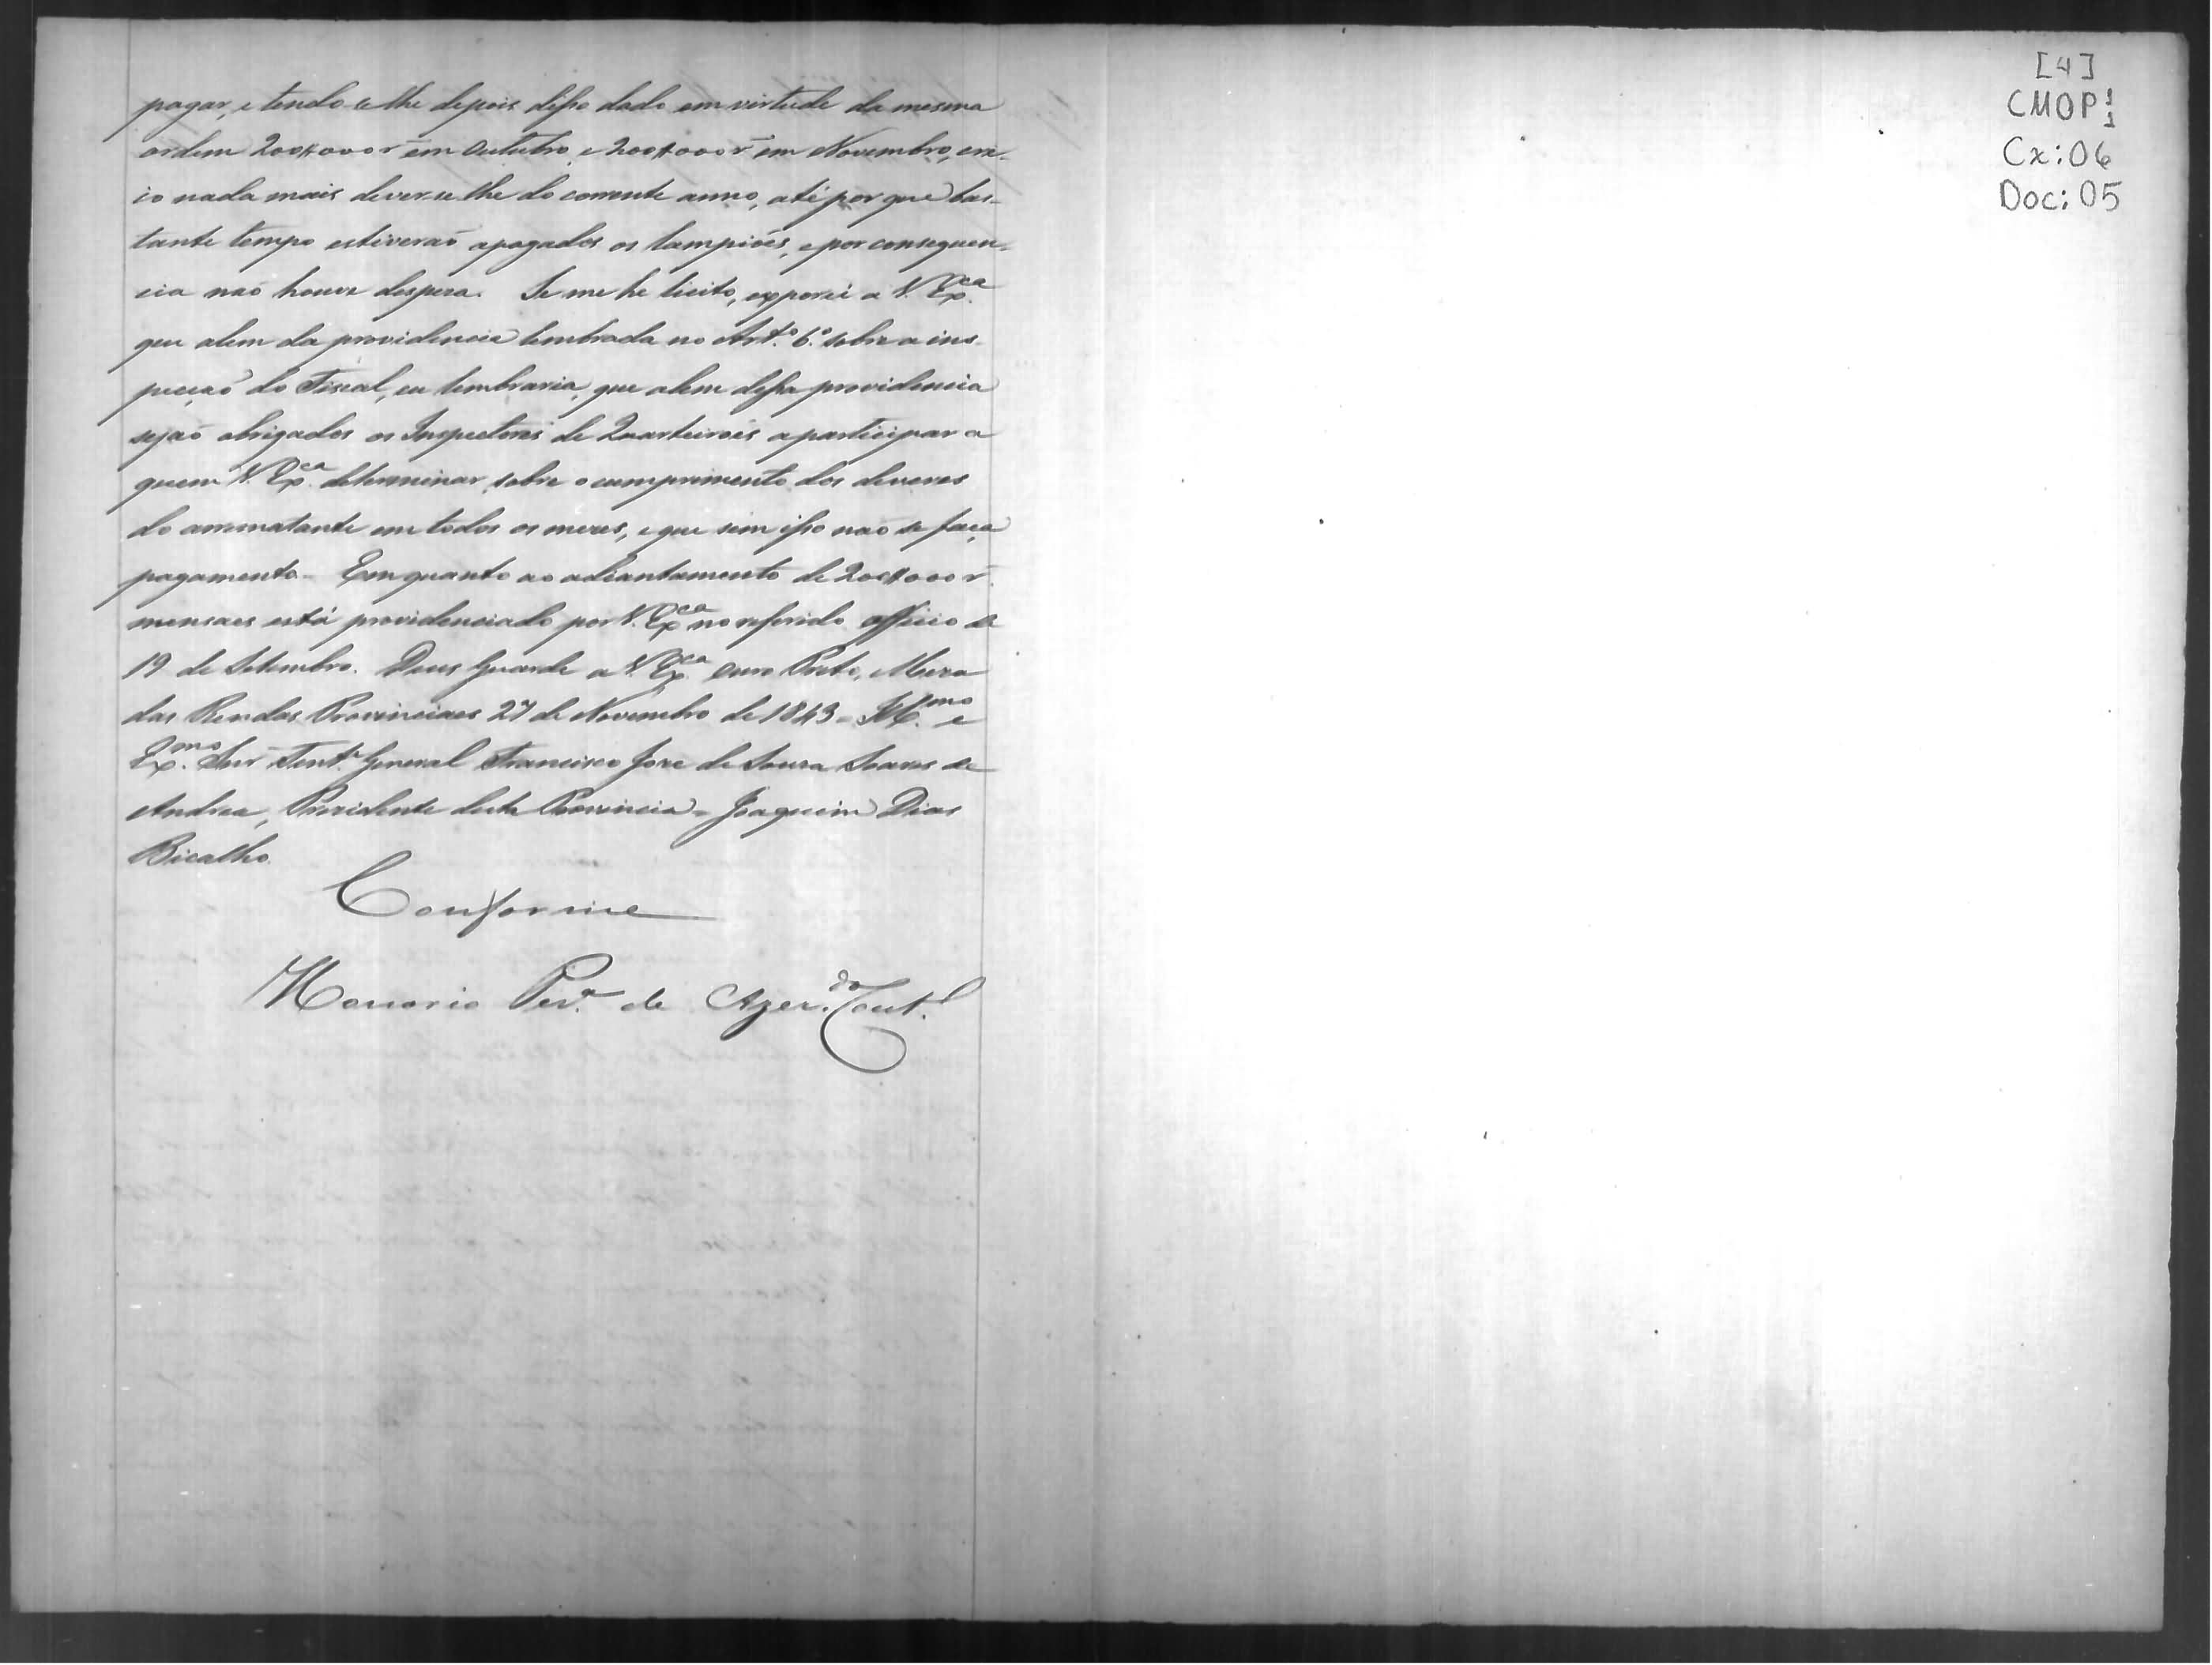 pagar, e tendo se lhe depois disso dado em virtude da mesma
ordem 200$000 r em Outubro, e 200$000 r em Novembro, cre-
io nada mais dever-se lhe do corrente anno, até por que bas-
tante tempo estiveraõ apagados os lampiões, e por consequen-
cia naõ houve despeza. Se me he licito, exporei a V. Exca.
que alem da providencia lembrada no Art.º 6.º sobre a ins-
pecçaõ do Fiscal, eu lembraria, que alem dessa providencia
sejaõ obrigados os Inspectores de Quarteirões a participar a
quem V. Exca. determinar sobre o cumprimento dos deveres
do arrematante em todos os mezes, e que sem isso naõ se faça
pagamento. Em quanto ao adiantamento de 200$000 r
mensaes está providenciado por V. Exca no referido officio de
19 de Setembro. Deus Guarde a V. Exca. Ouro Preto, Meza
das Rendas Provinciaes 27 de Novembro de 1843 - Ill.mo e
Ex.mo Snr Tent.e General Francisco Joze de Souza Soares de
Andrea, Prezidente desta Provincia - Joaquim Dias
Bicalho.
Conforme
Honorio Per.a de Azer.do Cout.
[4]
CMOP:
Cx: 06
Doc: 05